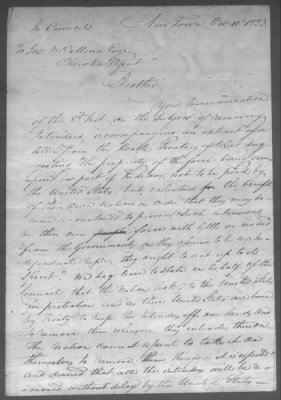 In Council New Town Oct. 11th 1823
To Jos. McMinn Esqr
Cherokee Agent
Brother
Your Communication
of the 8th Inst on the subject of removing
Intruders, accompanying an extract of a
letter from the Honble Secretary of War sug-
gesting the propriety of the force being com-
posed in part of Indians, not to be paid by
the United States but volunteered for the benefit
of their own Nation in order that they may be
come to prevent such intrusions
by their own force with little or no aid
from the Government, as they aspire to be an In-
dependent People, they ought to act up to its
Spirit." We beg leave to State in behalf of the
Council that the Nation look to the United States
for protection and as their United States are bound
by Treaty to keep the intruders off our lands and
to remove them whenever they intrude thereon
the Nation cannot assent to take it on
themselves to remove them, therefore it is expected
and desired that all the intruders will be re-
moved without delay by the United States